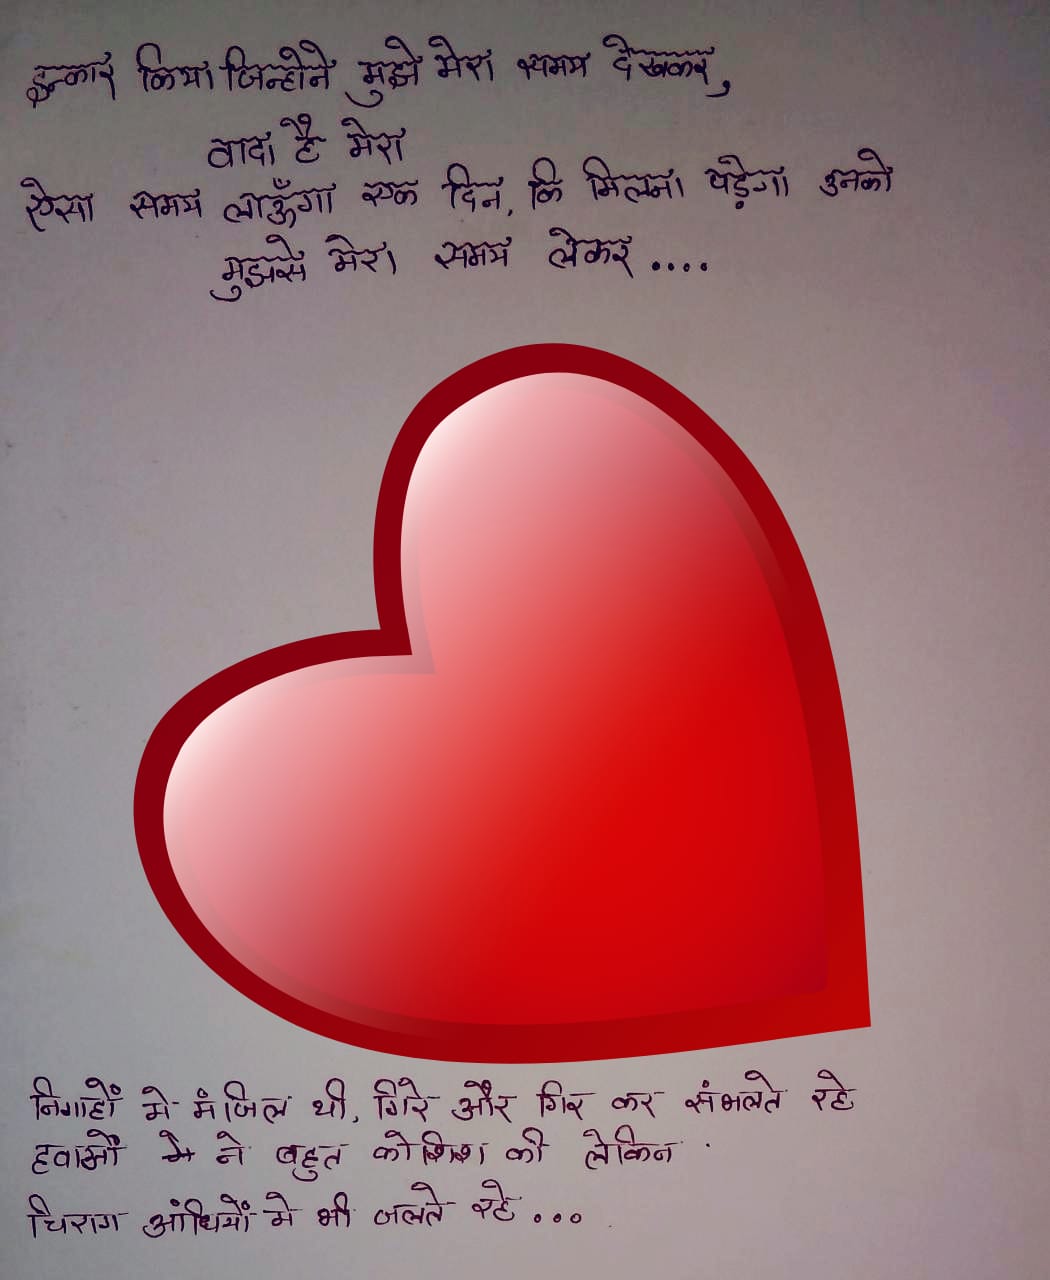 इन्कार किया जिन्होने मुझे मेरा समय देखकर,
वादा है मेरा
ऐसा समय लाऊँगा एक दिन, कि मिलना पड़ेगा उनको
मुझसे मेरा समय लेकर ....
निगाहों मे मंजिल थी, गिरे और गिर कर संभलते रहे
हवाओं ने बहुत कोशिश की लेकिन
चिराग आंधियों मे भी जलते रहे ...